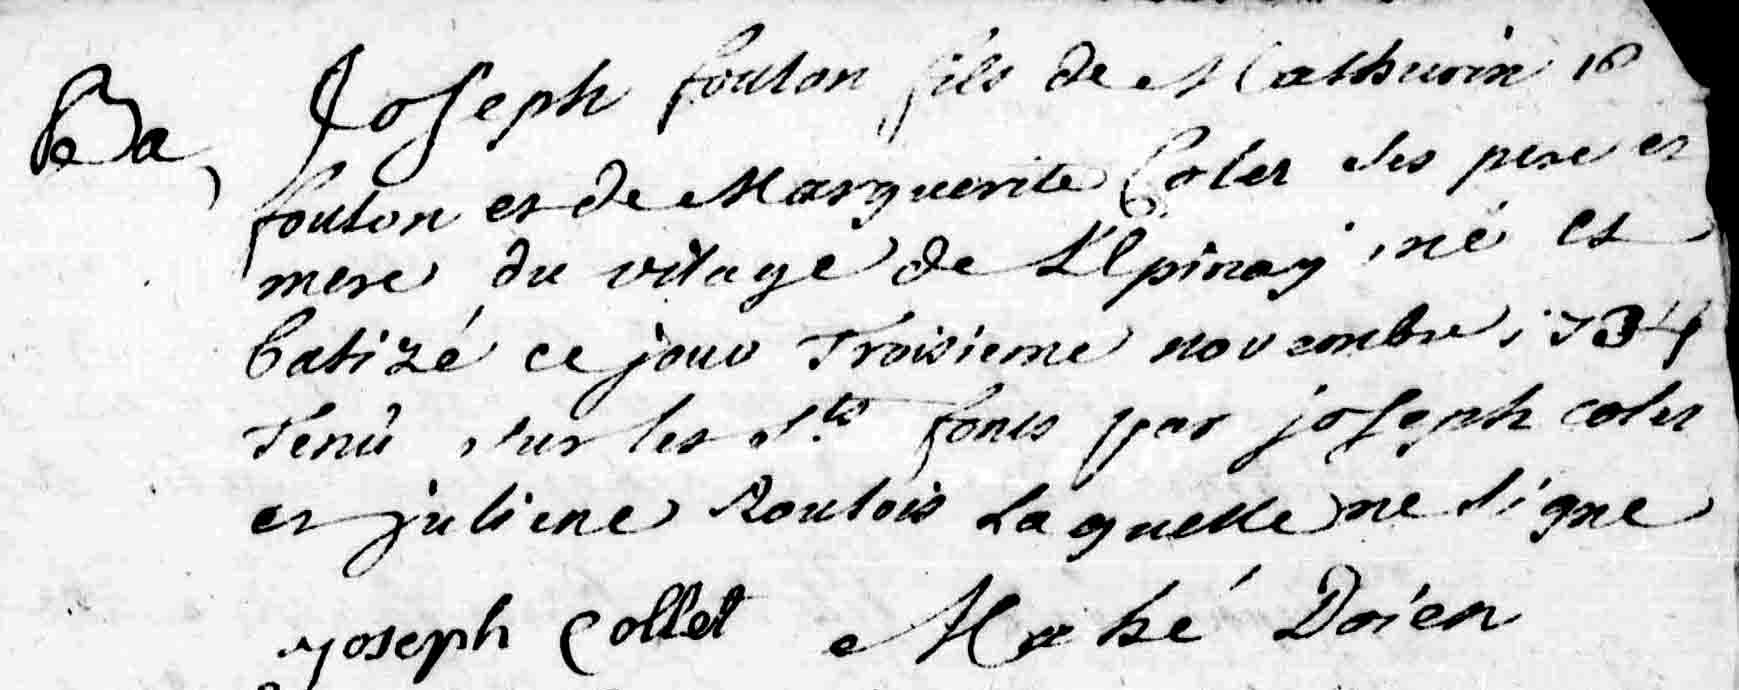 Ba, Joseph foulon fils de Mathurin
foulon et de Marguerite Colet ses pere et
mere du vilage de L'Epinay né et
batizé ce jour troisieme novembre 1734
tenû sur les sts fonts par joseph colet
et juliene Roulois laquelle ne signe
joseph Collet Mahé Doien